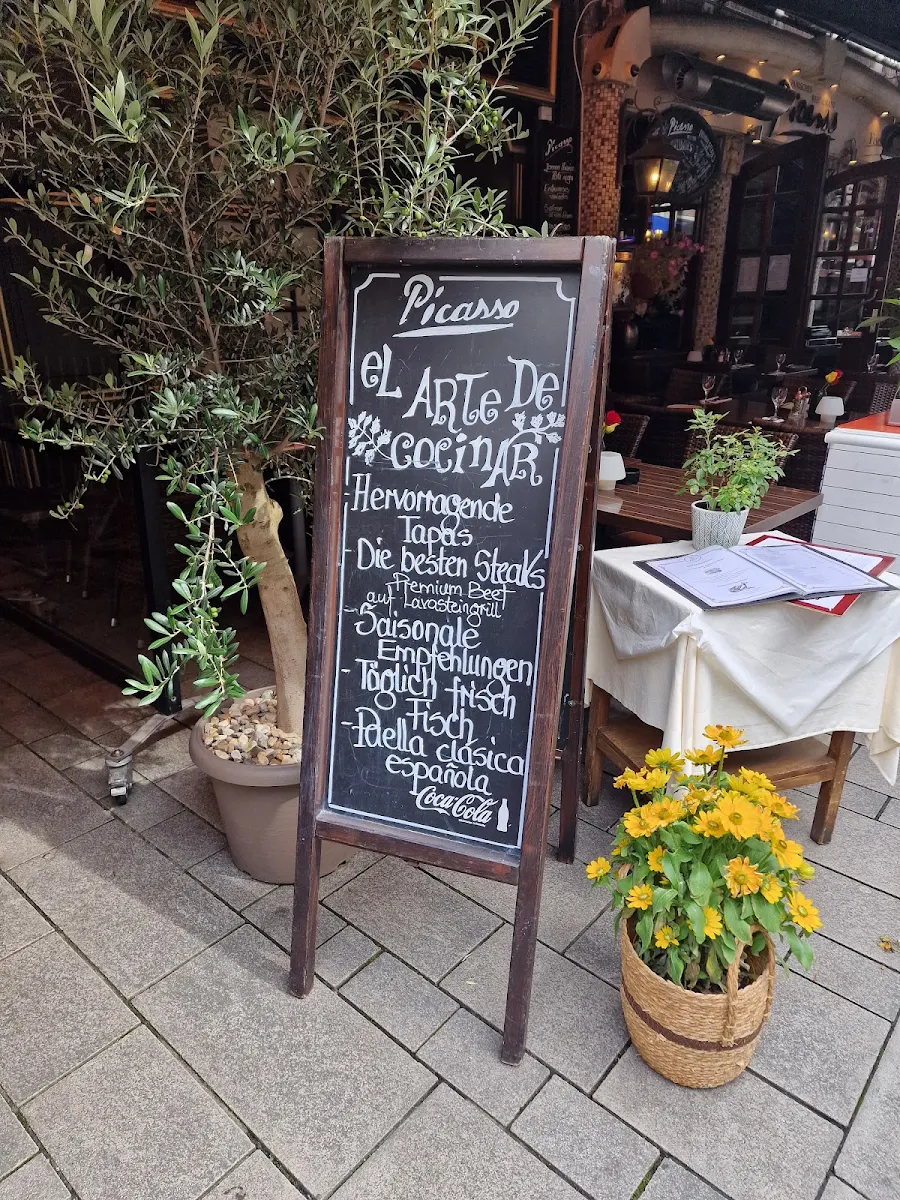 Picasso
EL ARTE DE
COCINAR
- Hervorragende
Tapas
- Die besten Steaks
Premium Beef
auf Lavasteingrill
- Saisonale
Empfehlungen
- Täglich frisch
Fisch
- Paella clásica
española
Coca-Cola
Picasso
Picasso
Picasso